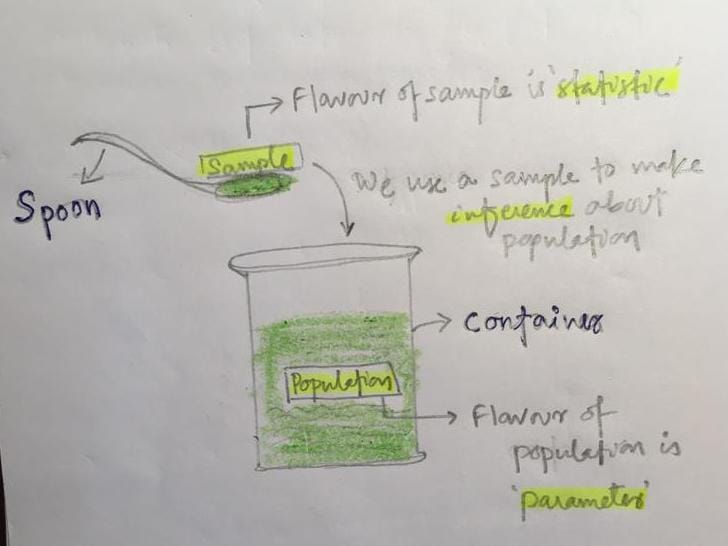 Flavour of sample is 'statistic'
Sample
Spoon
We use a sample to make
inference about
population
Container
Population
Flavour of
population is
'parameter'